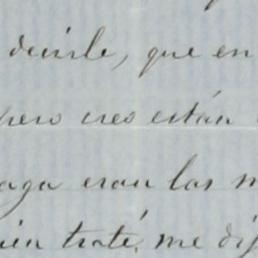 decirle, que en
pero creo están
aga eran las m
ien traté, me di